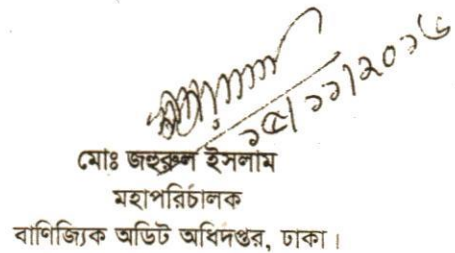 ১৫/১১/২০১৬
মোঃ জহুরুল ইসলাম
মহাপরিচালক
বাণিজ্যিক অডিট অধিদপ্তর, ঢাকা।